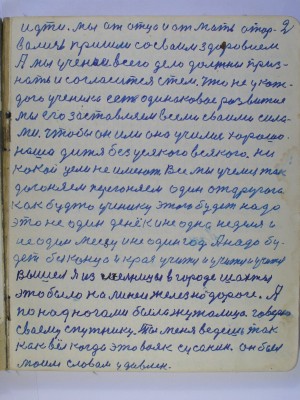 идти. мы от отца и от мать отор- 2
вались пришли со своим здоровием
А мы ученым всего дело должны приз-
нать и согласится с тем, что не у каж-
дого ученика есть одинаковое развитие
мы его заставляем всеми своими сила-
ми, чтобы он или она училис хорошо.
наша дитя без усякого всякого. ни
какой цели не имеют Все мы учемы так
догоняем перегоняем один от другога
как будто ученику этого будет надо
это не один денёк и не одна неделя и
не один месяц и не один год. А надо бу-
дет без конца и края учится и учится и учится
Вышел я из больницы в городе шахты
это было на линии железной дороге. А
по над ногами была жужалица. говорю
своему спутнику. Ты меня ведешь так
как вёл когда это вояк сусанин. он был
моим словам удивлен.